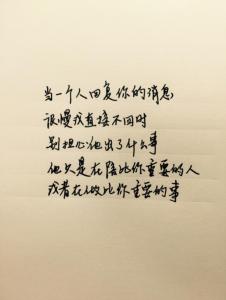 当一个人回复你的消息
很慢或直接不回时
别担心他出了什么事
他只是在陪比你重要的人
或者在做比你重要的事